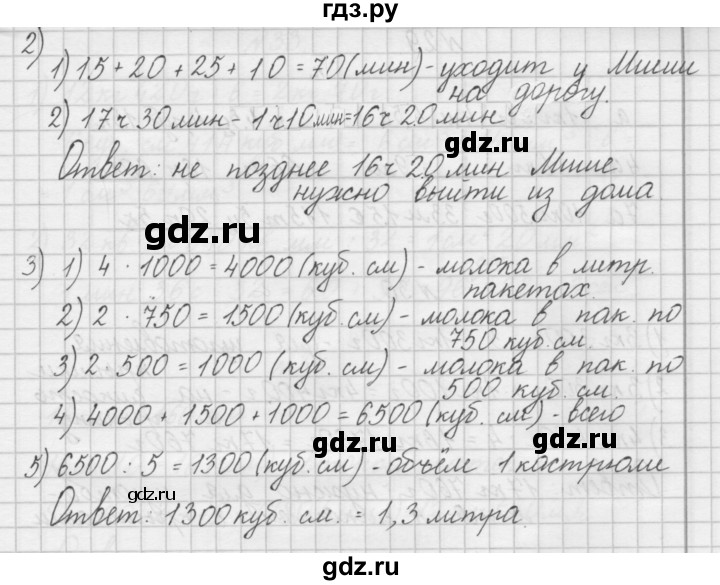 гдз.ру
2)
1) 15 + 20 + 25 + 10 = 70 (мин) - уходит у Миши
на дорогу.
2) 17ч 30мин - 1ч10мин=16ч 20мин
gdz.ru
Ответ: не позднее 16ч 20мин Мише
нужно выйти из дома.
gdz.ru
3) 1) 4 · 1000 = 4000 (куб. см) - молока в литр.
пакетах.
2) 2 · 750 = 1500 (куб. см) - молока в пак. по
750 куб. см.
3) 2 · 500 = 1000 (куб. см) - молока в пак. по
500 куб. см.
4) 4000 + 1500 + 1000 = 6500 (куб. см) - всего
gdz.ru gdz.ru
5) 6500 : 5 = 1300 (куб. см) - объём 1 кастрюли
gdz.ru
Ответ: 1300 куб. см. = 1,3 литра.
gdz.ru